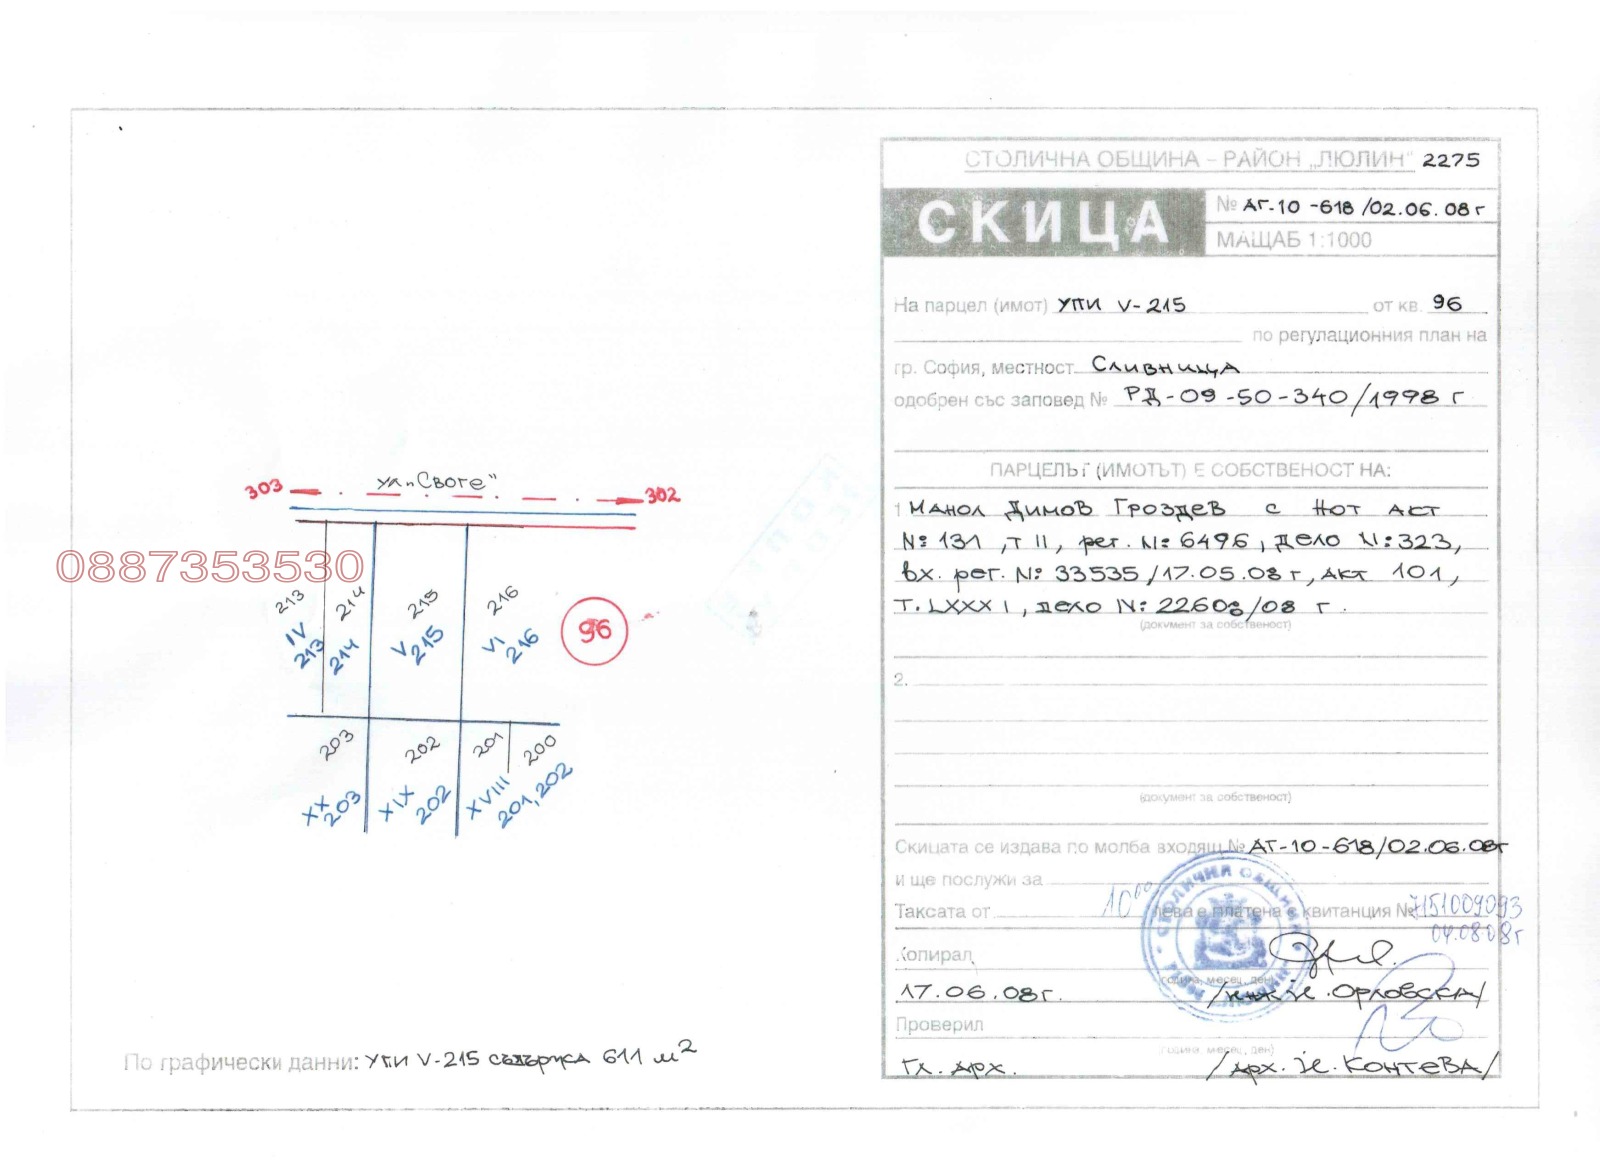 СТОЛИЧНА ОБЩИНА – РАЙОН „ЛЮЛИН“ 2275
СКИЦА
№ АГ-10-618/02.06.08г
МАЩАБ 1:1000
На парцел (имот) УПИ V-215 от кв. 96
по регулационния план на
гр. София, местност Сливница
одобрен със заповед № РД-09-50-340/1998 г
ПАРЦЕЛЪТ (ИМОТЪТ) Е СОБСТВЕНОСТ НА:
1 Манол Димов Гроздев с Нот акт
№:131, т II, рег. №:6496, дело №:323,
вх. рег. №: 33535/17.05.08г, акт 101,
т. LXXXI, дело №:22608/08 г.
(документ за собственост)
2.
(документ за собственост)
Скицата се издава по молба входящ № АГ-10-618/02.06.08г
и ще послужи за
Таксата от 10⁰⁰ лева е платена с квитанция № 7151009093
04.08.08г
Копирал
(година, месец, ден)
17.06.08г. /инж И. Орловска/
Проверил
(година, месец, ден)
Гл. арх. /арх. И. Контева/
СТОЛИЧНА ОБЩИНА
ул. „Своге“
303
302
0887353530
213
214
215
216
IV 213
214
V 215
VI 216
96
203
202
201
200
XX 203
XIX 202
XVIII 201,202
По графически данни: УПИ V-215 съдържа 611 м²